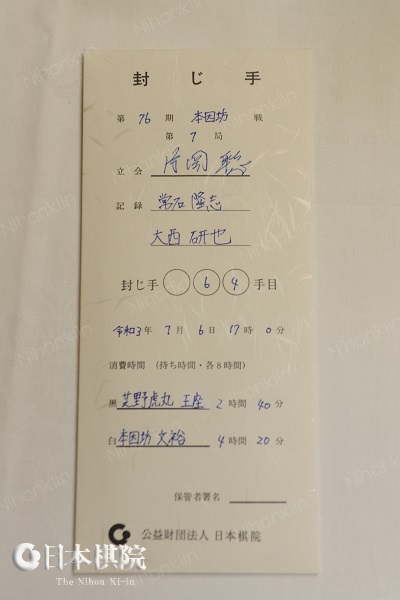 封じ手
第 76 期 本因坊 戦
第 7 局
立会 片岡 聡
記録 常石 隆志
大西 研也
封じ手 6 4 手目
令和3年 7 月 6 日 17 時 0 分
消費時間 (持ち時間・各8時間)
黒 芝野虎丸 王座 2 時間 40 分
白 本因坊 文裕 4 時間 20 分
保管者署名
公益財団法人 日本棋院
日本棋院
The Nihon Ki-in
Nihonkiin